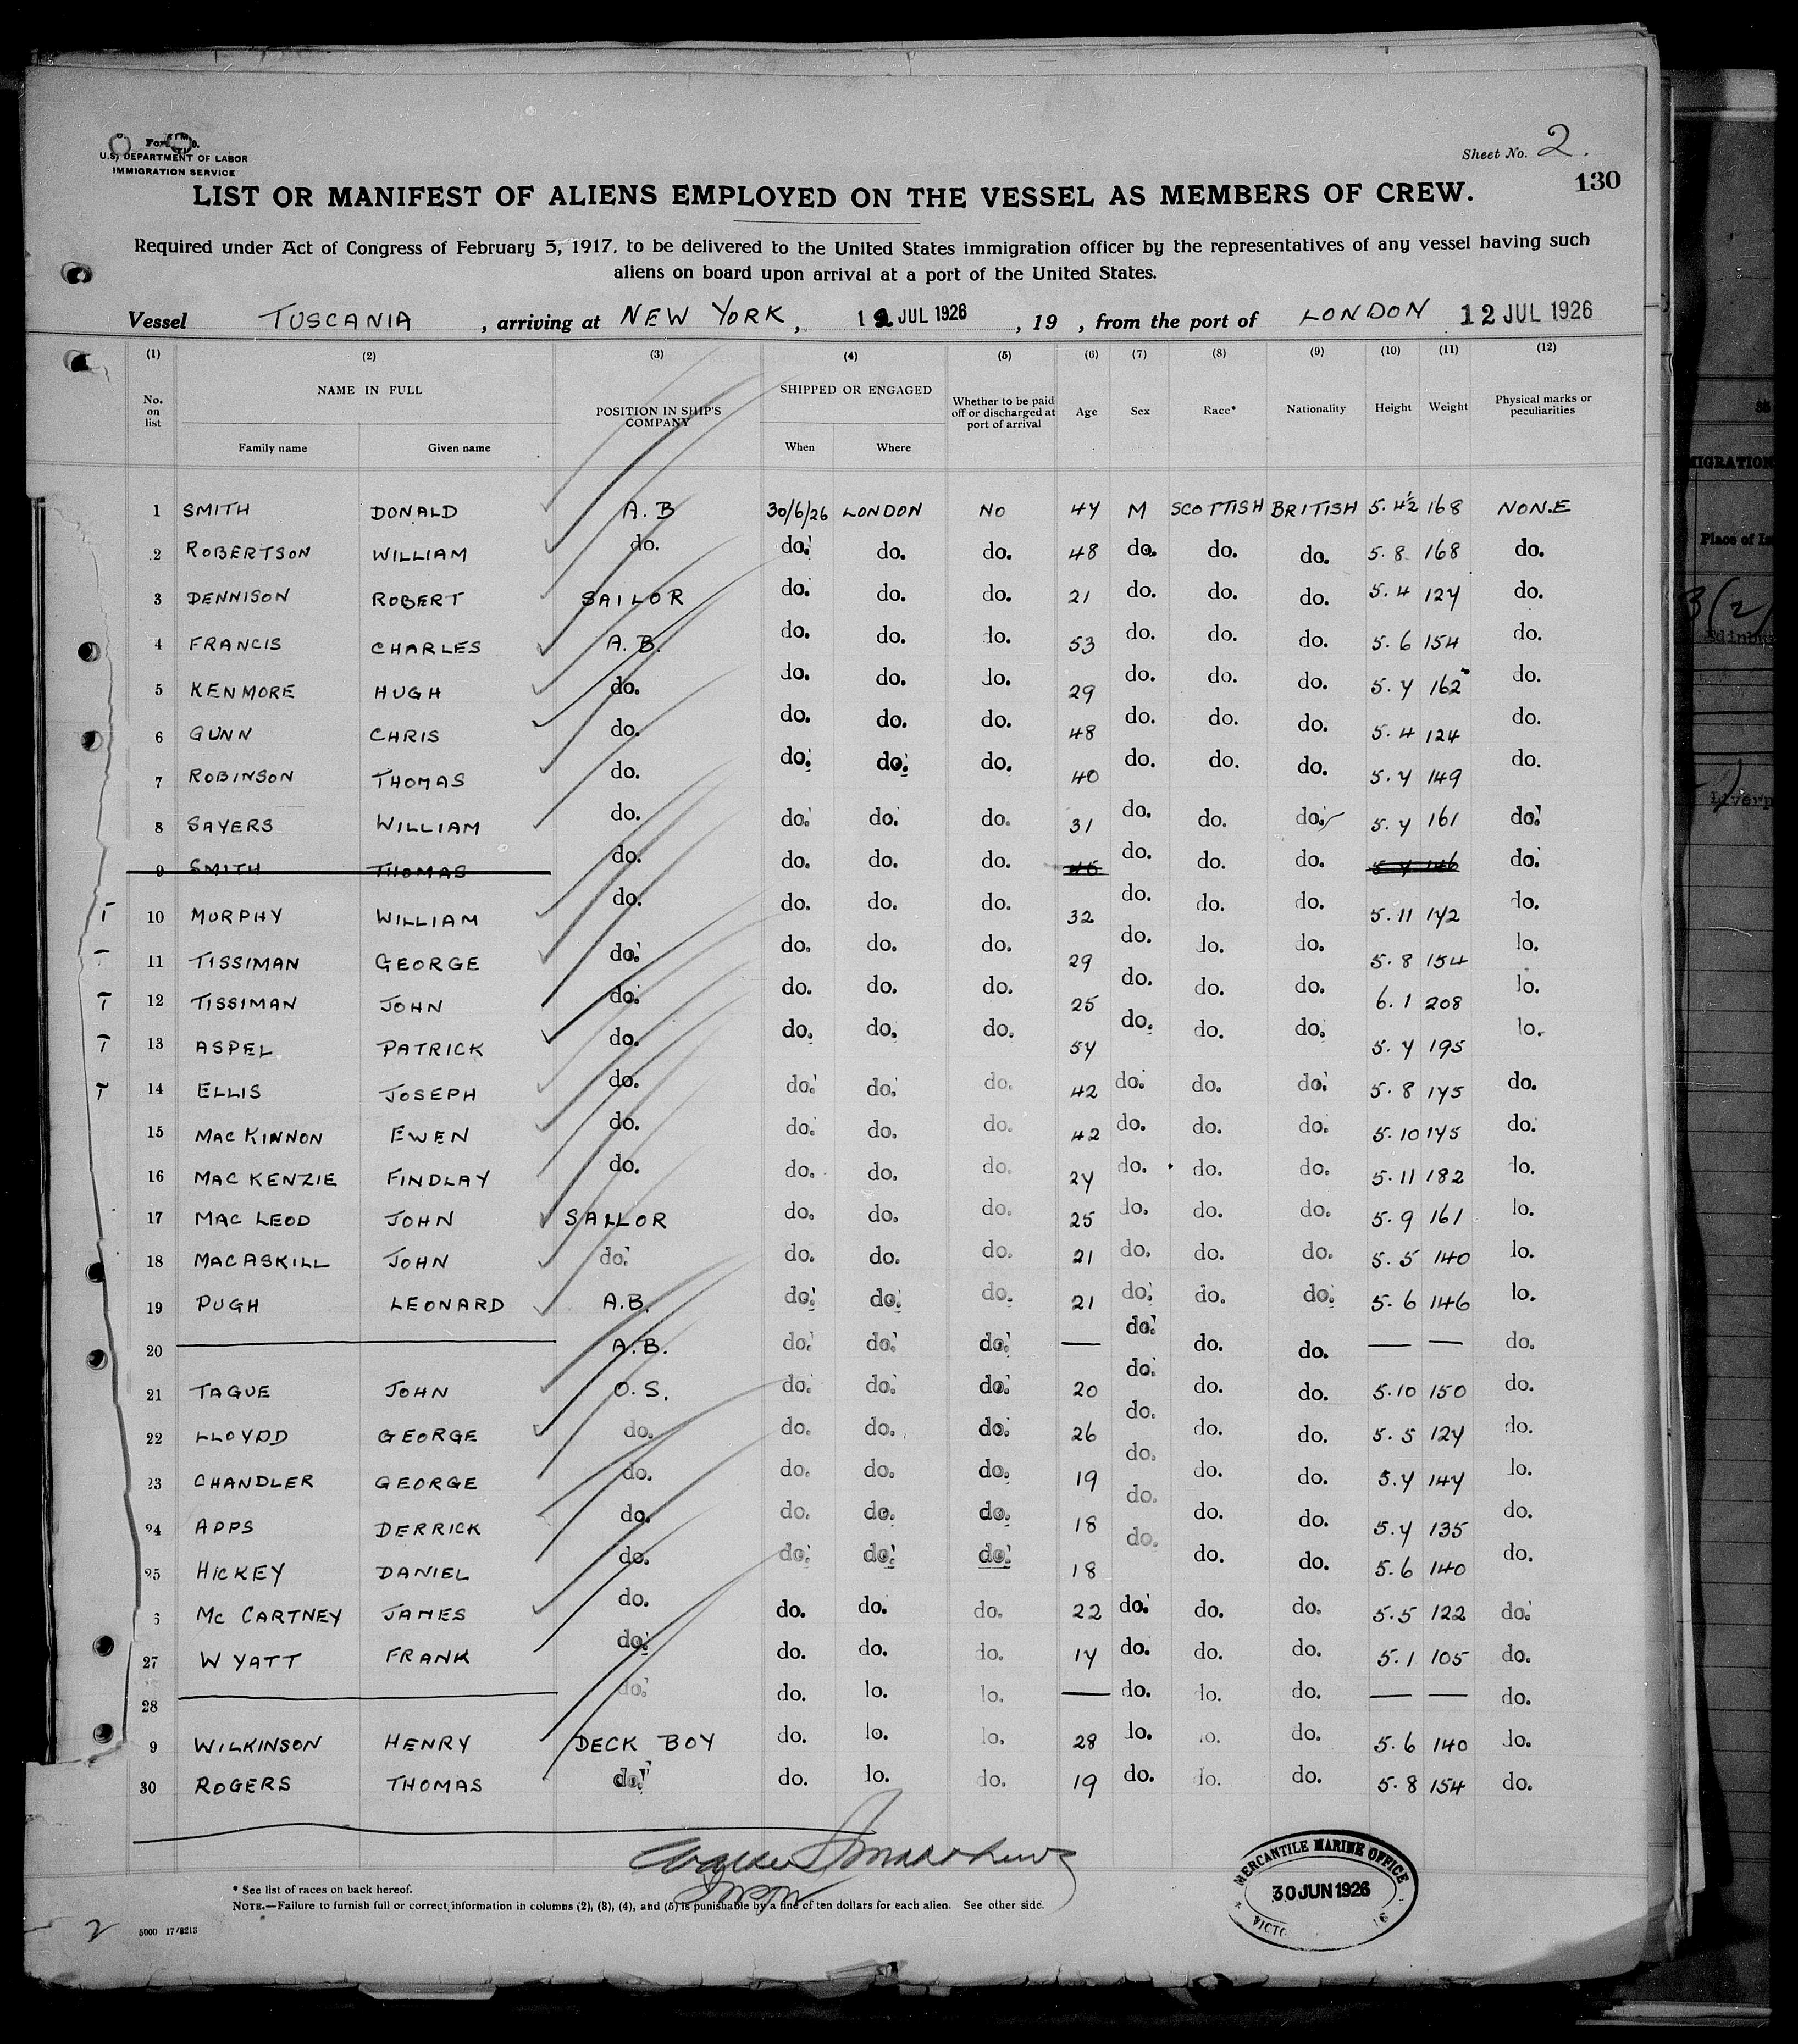 U.S. DEPARTMENT OF LABOR
IMMIGRATION SERVICE
Sheet No. 2.
130
LIST OR MANIFEST OF ALIENS EMPLOYED ON THE VESSEL AS MEMBERS OF CREW.
Required under Act of Congress of February 5, 1917, to be delivered to the United States immigration officer by the representatives of any vessel having such
aliens on board upon arrival at a port of the United States.
Vessel TUSCANIA, arriving at NEW YORK, JUL 1926, 19 , from the port of LONDON 12 JUL 1926
(1) (2) (3) (4) (5) (6) (7) (8) (9) (10) (11) (12)
No. on list NAME IN FULL Family name Given name POSITION IN SHIP'S COMPANY SHIPPED OR ENGAGED When Where Whether to be paid off or discharged at port of arrival Age Sex Race* Nationality Height Weight Physical marks or peculiarities
1 SMITH DONALD A.B 30/6/26 LONDON NO 47 M SCOTTISH BRITISH 5.4½ 168 NONE
2 ROBERTSON WILLIAM do. do. do. do. 48 do. do. do. 5.8 168 do.
3 DENNISON ROBERT SAILOR do. do. do. 21 do. do. do. 5.4 127 do.
4 FRANCIS CHARLES A.B. do. do. do. 53 do. do. do. 5.6 154 do.
5 KENMORE HUGH do. do. do. do. 29 do. do. do. 5.7 162 do.
6 GUNN CHRIS do. do. do. do. 48 do. do. do. 5.4 124 do.
7 ROBINSON THOMAS do. do. do. do. 40 do. do. do. 5.7 149 do.
8 SAYERS WILLIAM do. do. do. do. 31 do. do. do. 5.7 161 do.
9 SMITH THOMAS do. do. do. do. 45 do. do. do. 5.7 146 do.
T 10 MURPHY WILLIAM do. do. do. do. 32 do. do. do. 5.11 172 do.
T 11 TISSIMAN GEORGE do. do. do. do. 29 do. do. do. 5.8 154 do.
T 12 TISSIMAN JOHN do. do. do. do. 25 do. do. do. 6.1 208 do.
T 13 ASPEL PATRICK do. do. do. do. 57 do. do. do. 5.7 195 do.
T 14 ELLIS JOSEPH do. do. do. do. 42 do. do. do. 5.8 175 do.
15 MACKINNON EWEN do. do. do. do. 42 do. do. do. 5.10 175 do.
16 MACKENZIE FINDLAY do. do. do. do. 27 do. do. do. 5.11 182 do.
17 MAC LEOD JOHN SAILOR do. do. do. 25 do. do. do. 5.9 161 do.
18 MACASKILL JOHN do. do. do. do. 21 do. do. do. 5.5 140 do.
19 PUGH LEONARD A.B. do. do. do. 21 do. do. do. 5.6 146 do.
20 — A.B. do. do. do. — do. do. do. — — do.
21 TAGUE JOHN O.S. do. do. do. 20 do. do. do. 5.10 150 do.
22 LLOYDD GEORGE do. do. do. do. 26 do. do. do. 5.5 127 do.
23 CHANDLER GEORGE do. do. do. do. 19 do. do. do. 5.7 147 do.
24 APPS DERRICK do. do. do. do. 18 do. do. do. 5.7 135 do.
25 HICKEY DANIEL do. do. do. do. 18 do. do. do. 5.6 140 do.
6 Mc CARTNEY JAMES do. do. do. do. 22 do. do. do. 5.5 122 do.
27 WYATT FRANK do. do. do. do. 17 do. do. do. 5.1 105 do.
28 — do. do. do. do. — do. do. do. — — do.
9 WILKINSON HENRY DECK BOY do. do. do. 28 do. do. do. 5.6 140 do.
30 ROGERS THOMAS do. do. do. do. 19 do. do. do. 5.8 154 do.
MERCANTILE MARINE OFFICE
30 JUN 1926
* See list of races on back hereof.
NOTE.—Failure to furnish full or correct information in columns (2), (3), (4), and (5) is punishable by a fine of ten dollars for each alien. See other side.
2 5000 17/8213
Place of